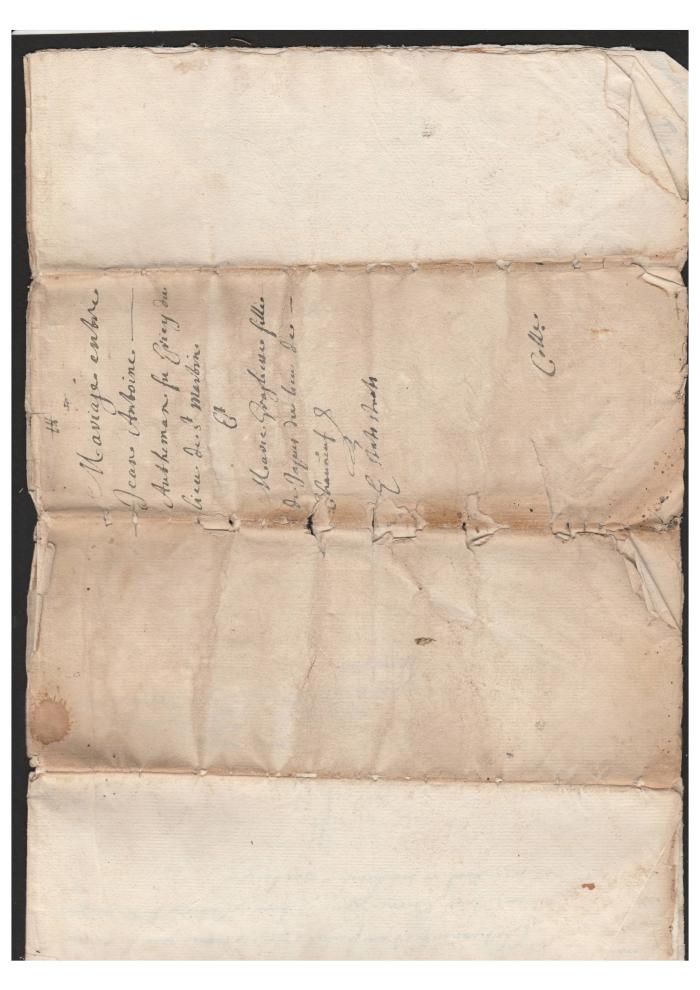 Mariage entre
Jean Antoine
Autheman fu Espry du
lieu de St Martin
Et
Marie Graglieuse fille
de Jaques du lieu de
Et
Colle